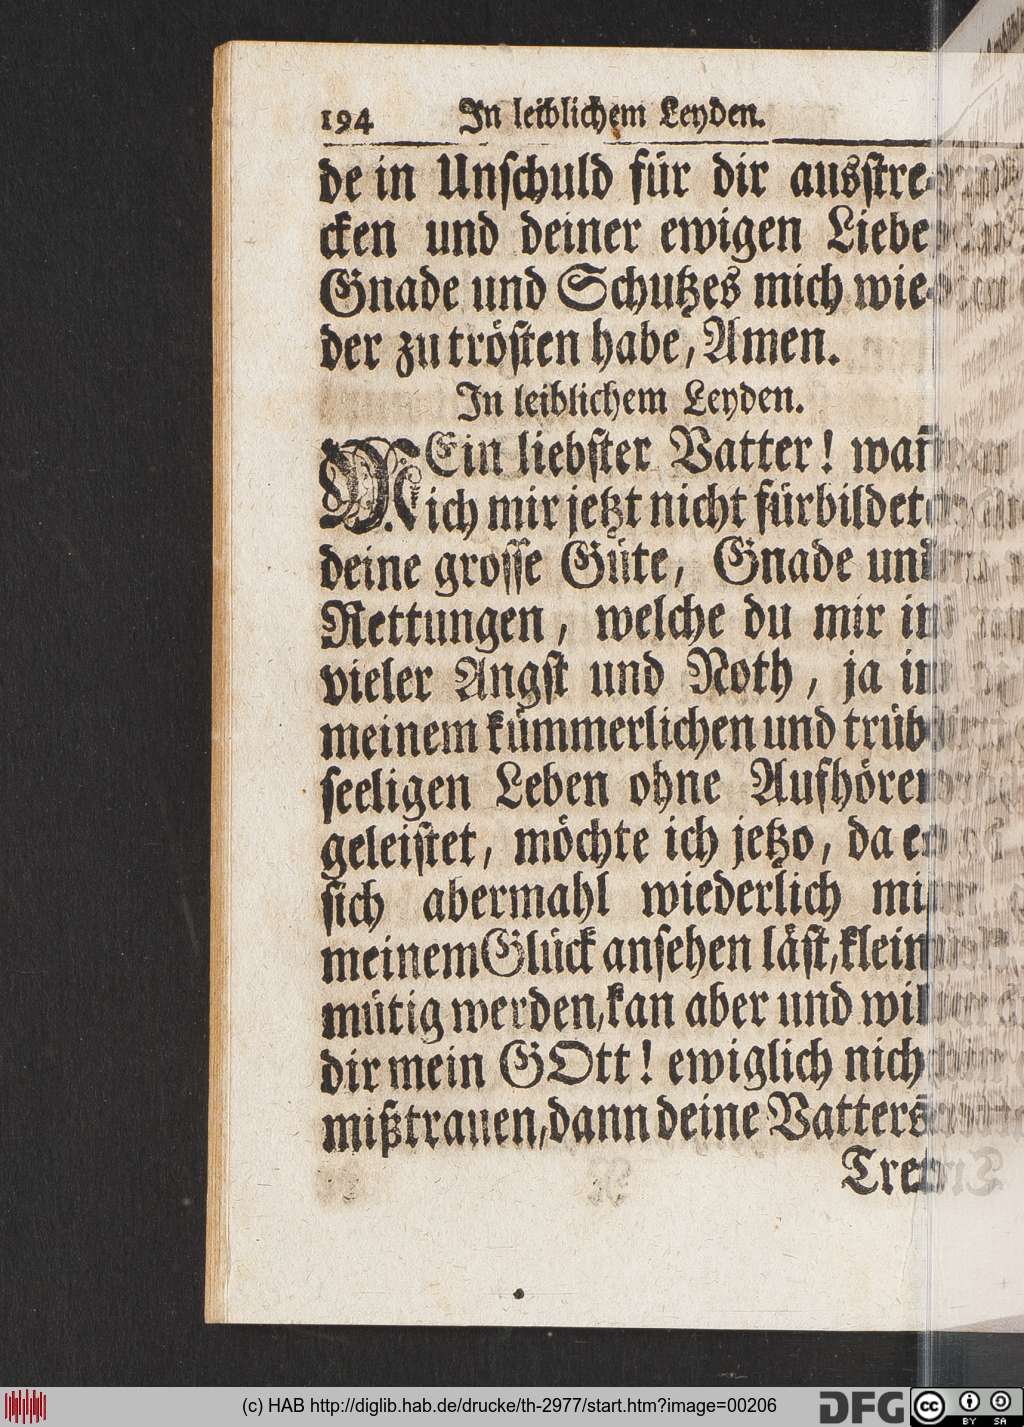 194 In leiblichem Leyden.
de in Unschuld für dir ausstre-
cken und deiner ewigen Liebe
Gnade und Schutzes mich wie-
der zu trösten habe, Amen.
In leiblichem Leyden.
MEin liebster Vatter! wañ
ich mir jetzt nicht fürbildet
deine grosse Güte, Gnade und
Rettungen, welche du mir in
vieler Angst und Noth, ja in
meinem kümmerlichen und trüb
seeligen Leben ohne Aufhören
geleistet, möchte ich jetzo, da
sich abermahl wiederlich
meinem Glück ansehen läst, klein
mütig werden, kan aber und wil
dir mein GOtt! ewiglich nich
mißtrauen, dann deine Vatters
Treu
(c) HAB http://diglib.hab.de/drucke/th-2977/start.htm?image=00206
DFG
cc BY SA